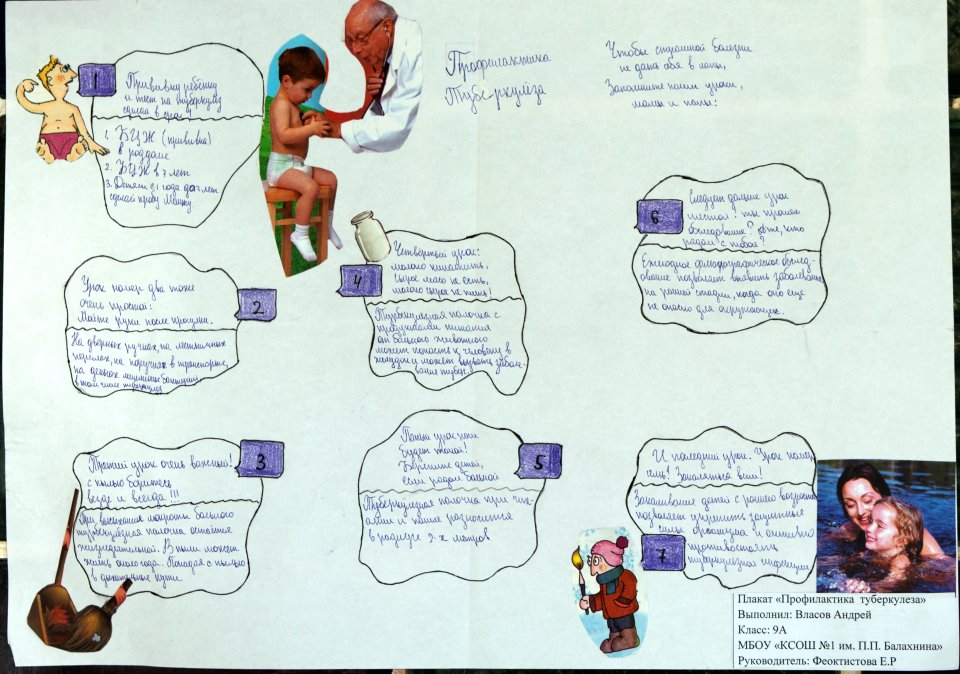 Профилактика
Туберкулёза
Чтобы страшной болезни
не дать себя в лапы,
Запомните наши уроки,
мамы и папы:
1
Прививку ребёнку
и тест на туберкулёз
сделай в срок!
1. БЦЖ (прививка)
в роддоме
2. БЦЖ в 7 лет
3. Детям с 1 года до 7 лет
сделай пробу Манту
2
Урок номер два тоже
очень простой:
Мойте руки после прогулки.
На дверных ручках, на лестничных
перилах, на поручнях в транспорте,
на деньгах миллионы бактерий,
в том числе туберкулёз
3
Третий урок очень важный!
с пылью боритесь
везде и всегда!!!
При высыхании мокроты больного
туберкулёзная палочка остаётся
жизнедеятельной. В пыли может
жить около года. Попадая с пылью
в дыхательные пути.
4
Четвёртый урок:
молоко кипятить,
сырое мясо не есть,
молоко сырое не пить!
Туберкулёзная палочка с
продуктами питания
от больного животного
может попасть к человеку в
желудок и может вызвать заболе-
вание туберк.
5
Пятый урок
будет такой!
Берегите детей,
если рядом больной
Туберкулёзная палочка при чих-
ании и кашле разносится
в радиусе 2-х метров
6
Следует дальше урок
шестой: ты прошёл
обследование? а те, кто
рядом с тобой?
Ежегодное флюорографическое обслед-
ование позволяет выявить заболевание
на ранней стадии, когда оно ещё
не опасно для окружающих.
7
И последний урок. Урок номер
семь! Закаляться всем!
Закаливание детей с раннего возраста
позволяет укрепить защитные
силы организма и активней
противостоять
туберкулёзной инфекции
Плакат «Профилактика туберкулеза»
Выполнил: Власов Андрей
Класс: 9А
МБОУ «КСОШ №1 им. П.П. Балахнина»
Руководитель: Феоктистова Е.Р